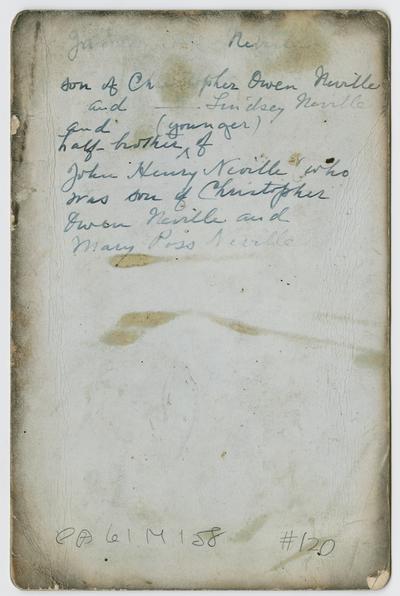 Neville
son of Christopher Owen Neville
and ——— Lindsey Neville
and (younger)
half-brother ^ of
John Henry Neville Sr who
was son of Christopher
Owen Neville and
Mary Poss Neville
PA 61 M 158 #120